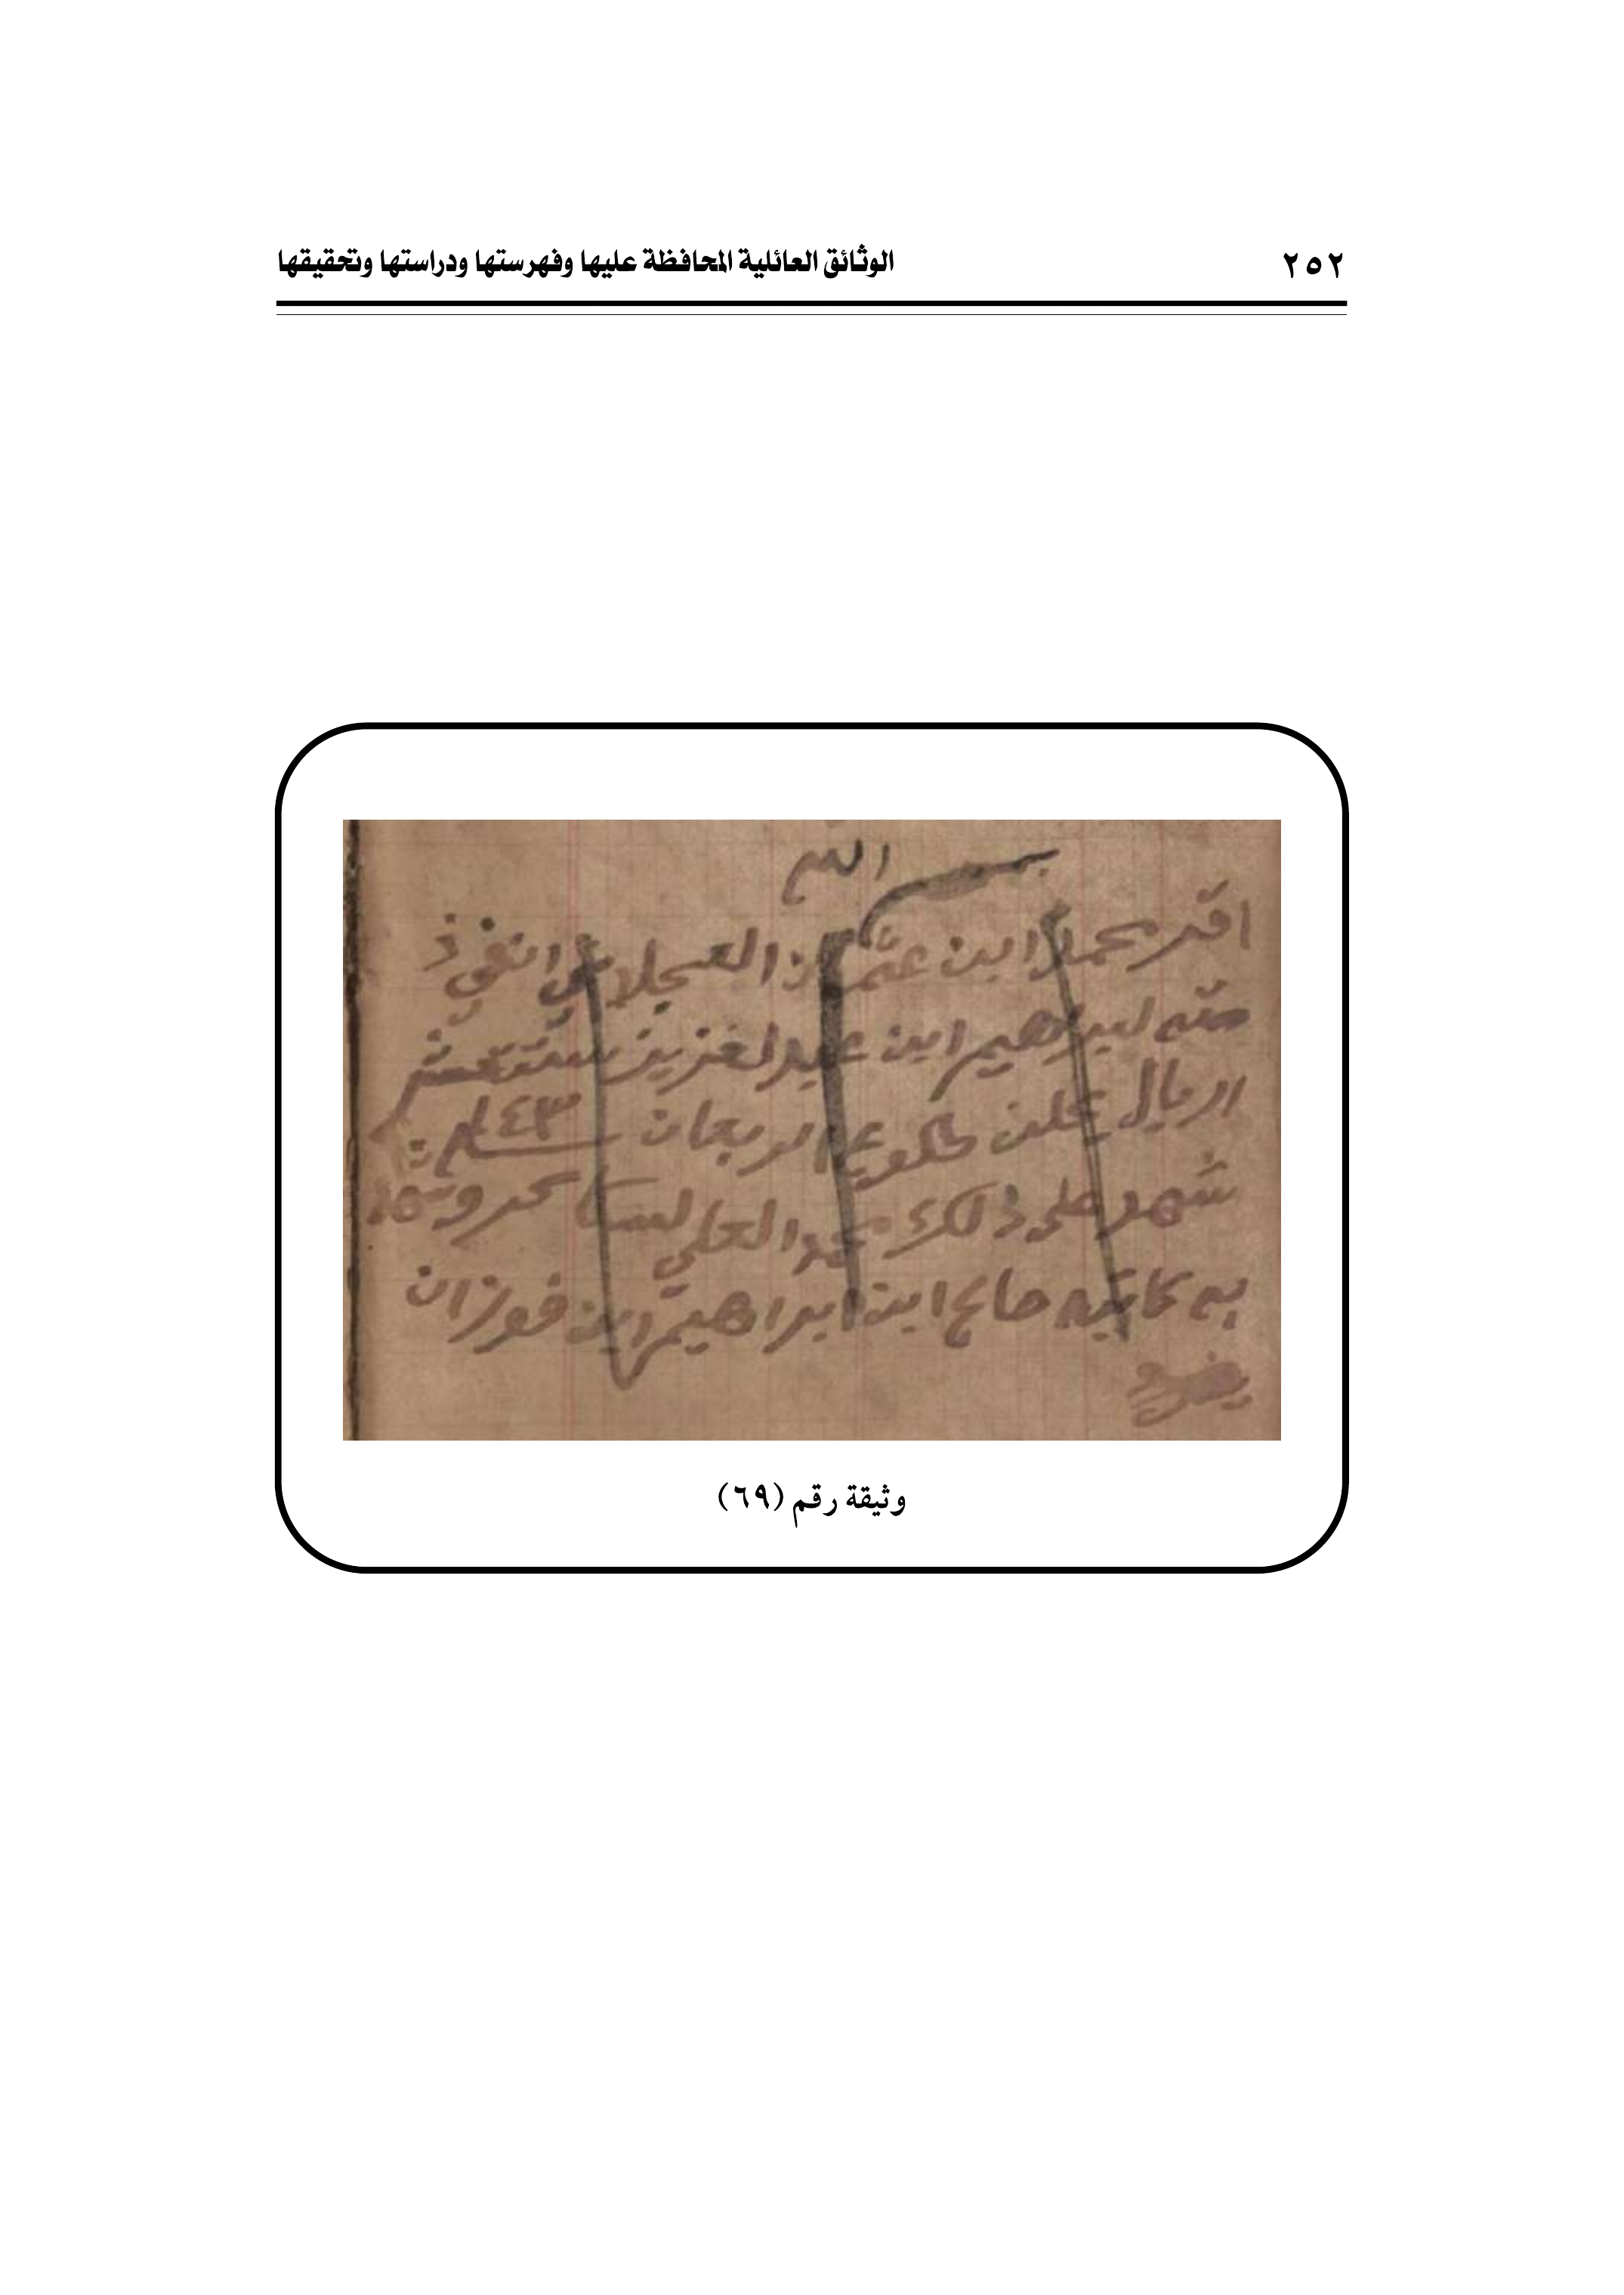 ٢٥٢
الوثائق العائلية المحافظة عليها وفهرستها ودراستها وتحقيقها
بسم الله
اقر محمد ابن عثمان العجلاني ان في ذ
مته لبراهيم ابن عبد لعزيز ستتعشر
اريال يحلن طلوع الربعان ٤٣
شهد على ذلك محمد العلي وشهد
به كاتبه صالح ابن ابراهيم ابن فوزان
وثيقة رقم (٦٩)